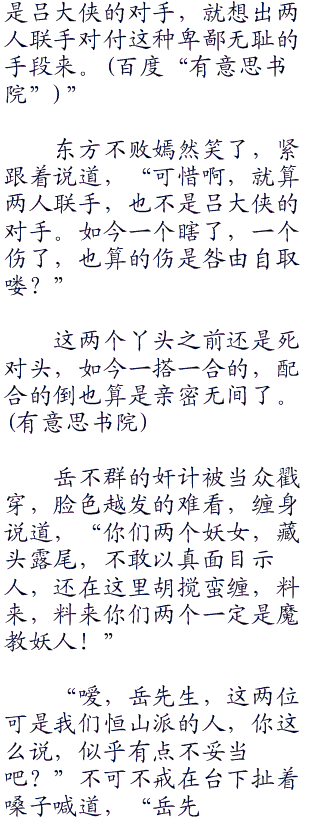 是吕大侠的对手，就想出两
人联手对付这种卑鄙无耻的
手段来。(百度“有意思书
院”)”
东方不败嫣然笑了，紧
跟着说道，“可惜啊，就算
两人联手，也不是吕大侠的
对手。如今一个瞎了，一个
伤了，也算的伤是咎由自取
喽？”
这两个丫头之前还是死
对头，如今一搭一合的，配
合的倒也算是亲密无间了。
(有意思书院)
岳不群的奸计被当众戳
穿，脸色越发的难看，缠身
说道，“你们两个妖女，藏
头露尾，不敢以真面目示
人，还在这里胡搅蛮缠，料
来，料来你们两个一定是魔
教妖人！”
“嗳，岳先生，这两位
可是我们恒山派的人，你这
么说，似乎有点不妥当
吧？”不可不戒在台下扯着
嗓子喊道，“岳先